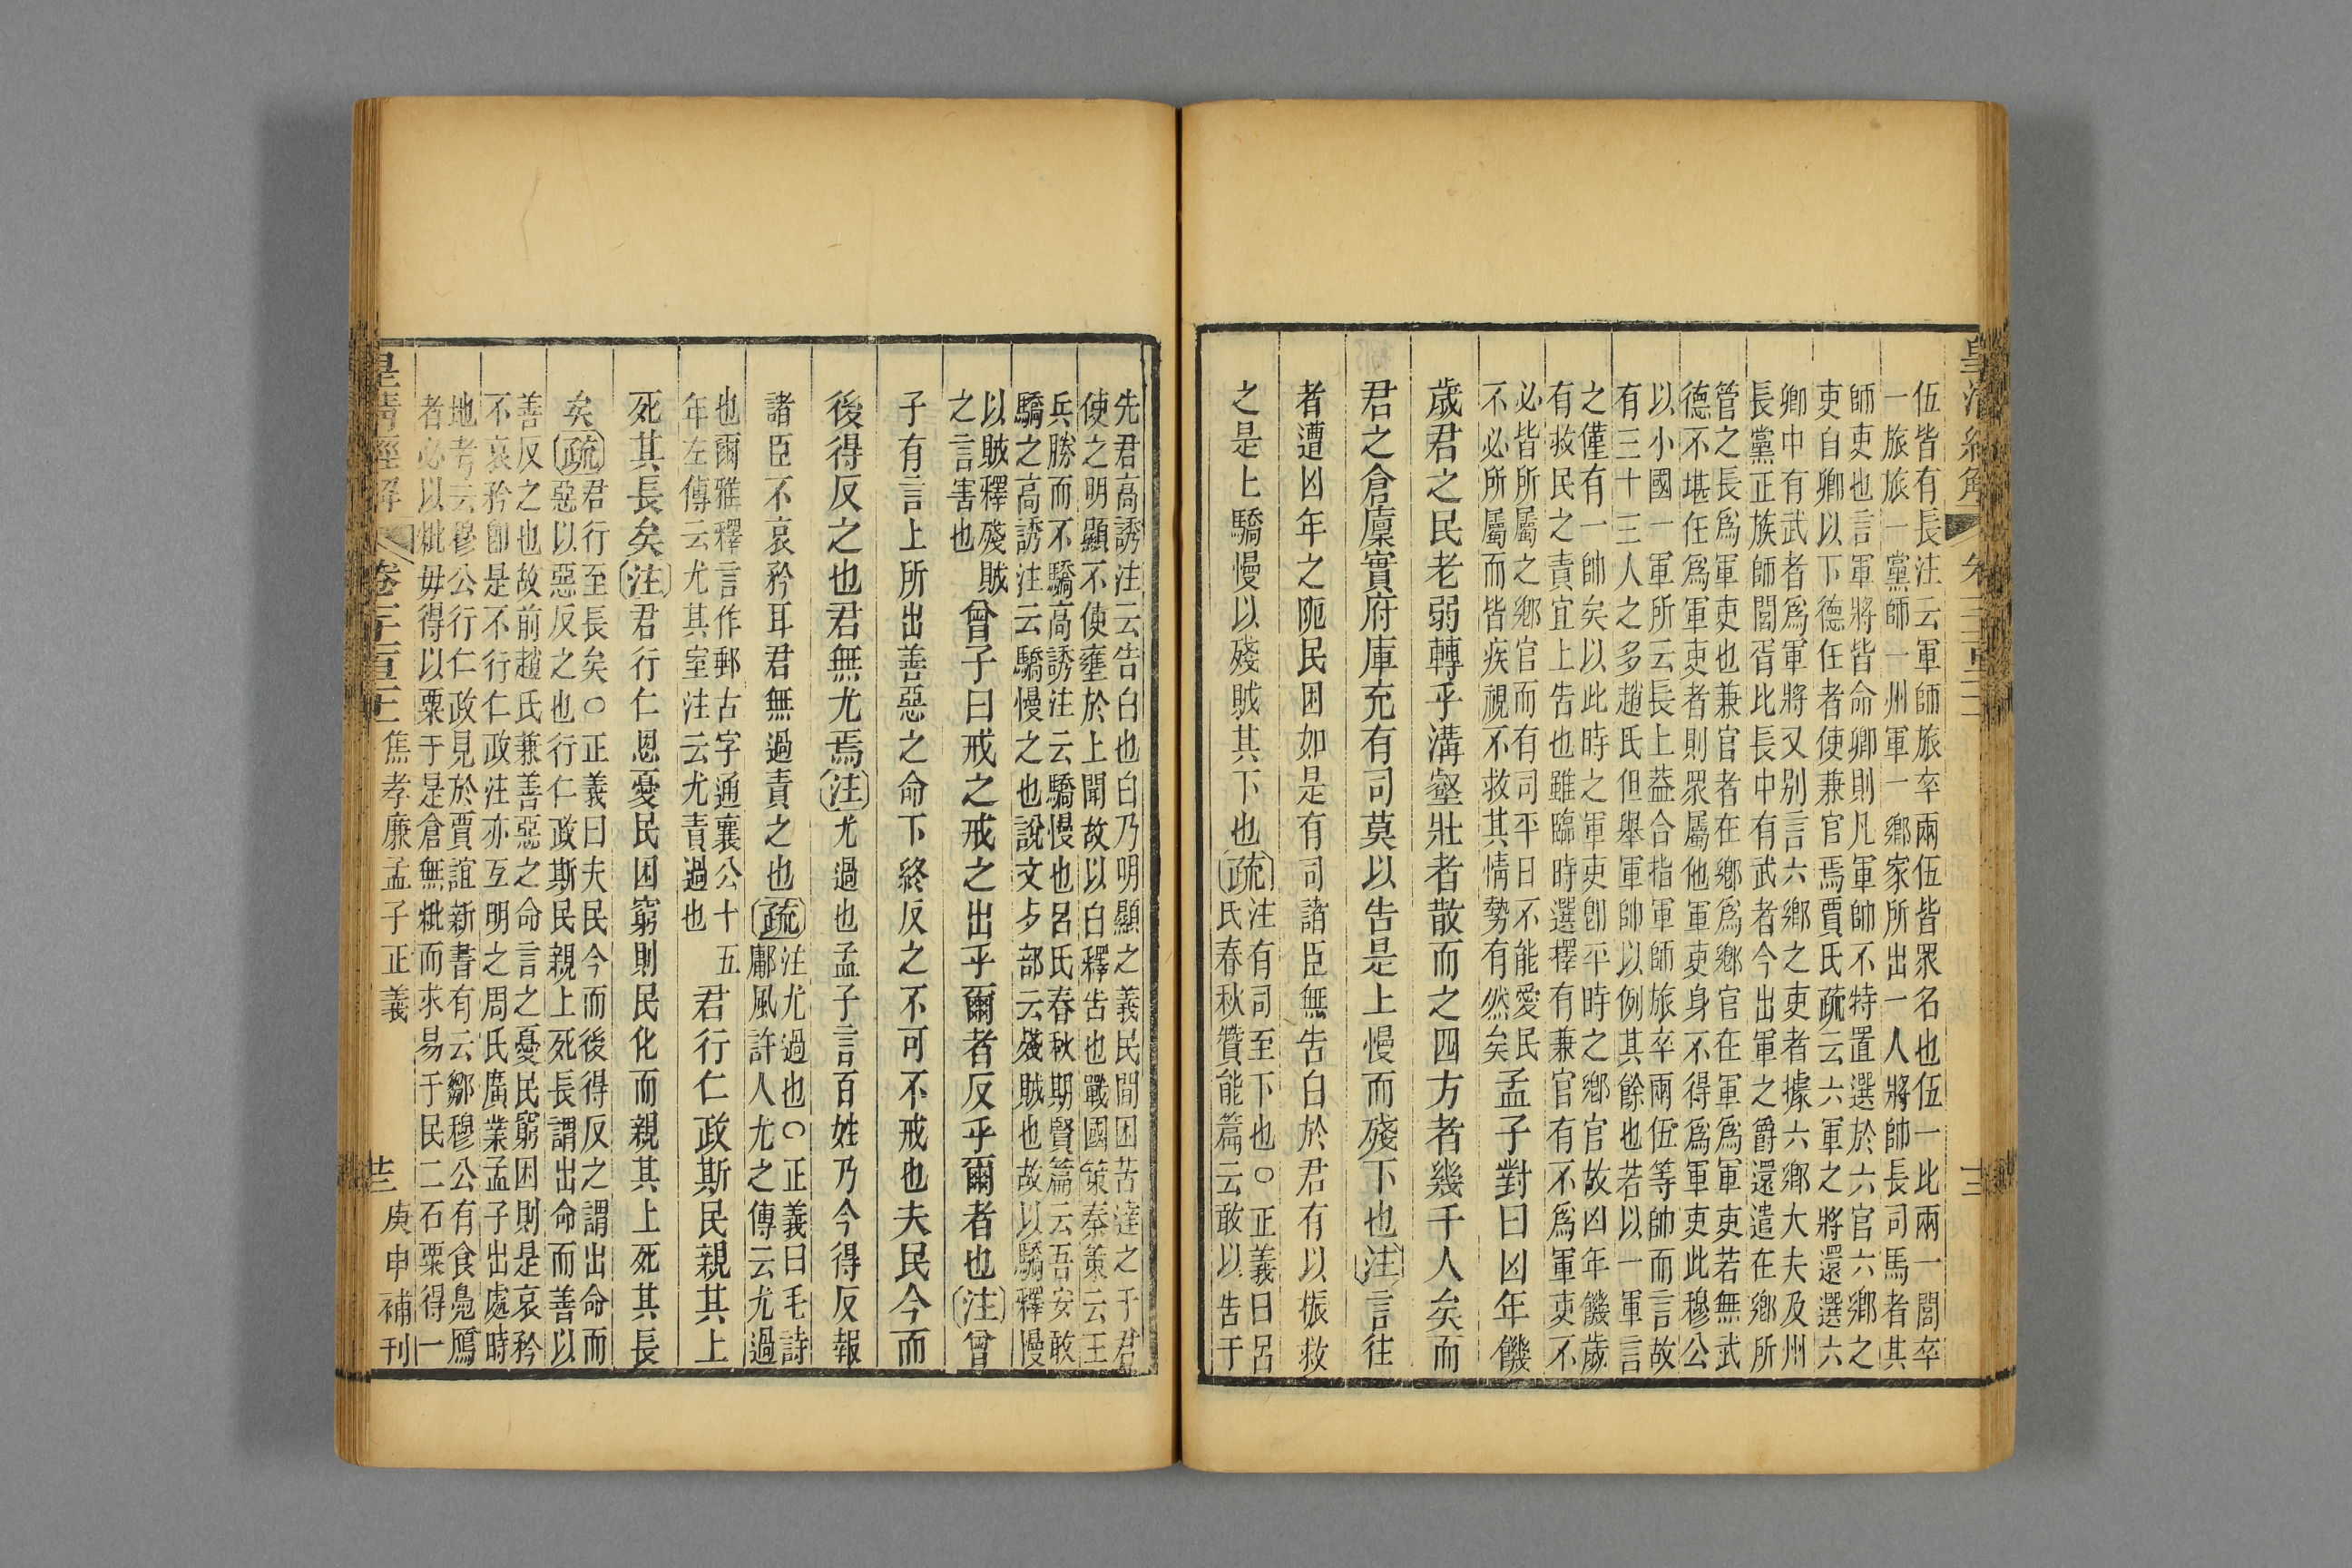 皇清經解
十三
伍皆有長注云軍師旅卒兩伍皆眾名也伍一比兩一閭卒
一旅旅一黨師一州軍一鄉家所出一人將帥長司馬者其
師吏也言軍將皆命卿則凡軍帥不特置選於六官六鄉之
吏自卿以下德任者使兼官焉賈氏疏云六軍之將還選六
卿中有武者爲軍將又別言六鄉之吏者據六鄉大夫及州
長黨正族師閭胥比長中有武者今出軍之爵還遣在鄉所
管之長爲軍吏也兼官者在鄉爲鄉官在軍爲軍吏若無武
德不堪任爲軍吏者則眾屬他軍吏身不得爲軍吏此穆公
以小國一軍所云長上葢合指軍師旅卒兩伍等帥而言故
有三十三人之多趙氏但舉軍帥以例其餘也若以一軍言
之僅有一帥矣以此時之軍吏卽平時之鄉官故凶年饑歲
有救民之責宜上告也雖臨時選擇有兼官有不爲軍吏不
必皆所屬之鄉官而有司平日不能愛民
不必所屬而皆疾視不救其情勢有然矣孟子對曰凶年饑
歲君之民老弱轉乎溝壑壯者散而之四方者幾千人矣而
君之倉廩實府庫充有司莫以告是上慢而殘下也注言往
者遭凶年之阨民困如是有司諸臣無告白於君有以振救
之是上驕慢以殘賊其下也疏注有司至下也○正義曰呂
氏春秋贊能篇云敢以告于
先君高誘注云告白也白乃明顯之義民間困苦達之于君
使之明顯不使壅於上聞故以白釋告也戰國策秦策云王
兵勝而不驕高誘注云驕慢也呂氏春秋期賢篇云吾安敢
驕之高誘注云驕慢之也說文歺部云殘賊也故以驕釋慢
以賊釋殘賊
之言害也曾子曰戒之戒之出乎爾者反乎爾者也注曾
子有言上所出善惡之命下終反之不可不戒也夫民今而
後得反之也君無尤焉注尤過也孟子言百姓乃今得反報
諸臣不哀矜耳君無過責之也疏注尤過也○正義曰毛詩
鄘風許人尤之傳云尤過
也爾雅釋言作郵古字通襄公十五
年左傳云尤其室注云尤責過也君行仁政斯民親其上
死其長矣注君行仁恩憂民困窮則民化而親其上死其長
矣疏君行至長矣○正義曰夫民今而後得反之謂出命而
惡以惡反之也行仁政斯民親上死長謂出命而善以
善反之也故前趙氏兼善惡之命言之憂民窮困則是哀矜
不哀矜卽是不行仁政注亦互明之周氏廣業孟子出處時
地考云穆公行仁政見於賈誼新書有云鄒穆公有食鳧鴈
者必以秕毋得以粟于是倉無秕而求易于民二石粟得一
皇清經解
卷千一百三
焦孝廉孟子正義
庚申補刊